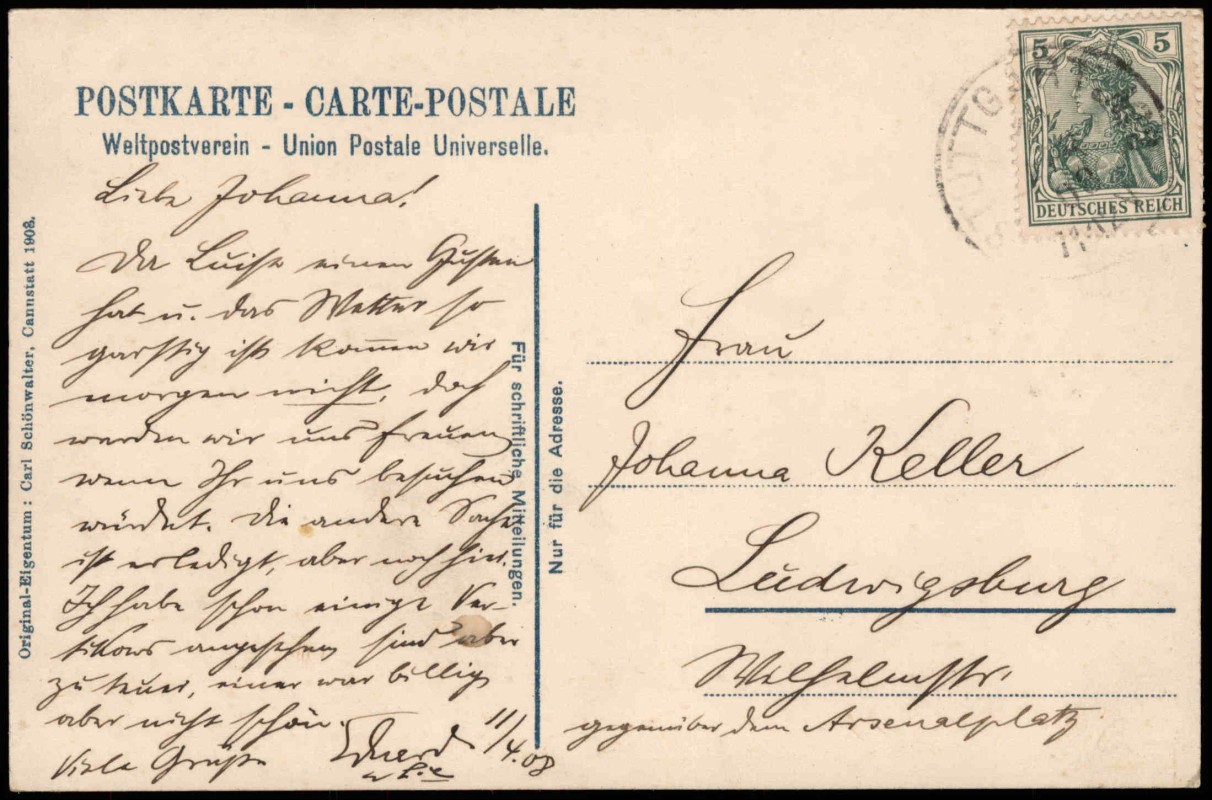 POSTKARTE - CARTE-POSTALE
Weltpostverein - Union Postale Universelle.
Liebe Johanna!
Da Luise einen Husten
hat u. das Wetter so
garstig ist kommen wir
morgen nicht, doch
werden wir uns freuen,
wenn Ihr uns besuchen
würdet. Die andere Sache
ist erledigt, aber noch hier.
Ich habe schon einige Ver-
tikows angesehen sind aber
zu teuer, einer war billig
aber nicht schön.
Viele Grüße Eduard
11/4.08
Original-Eigentum: Carl Schönwalter, Cannstatt 1903.
Für schriftliche Mitteilungen.
Nur für die Adresse.
5 5
DEUTSCHES REICH
STUTTGART
Frau
Johanna Keller
Ludwigsburg
Wilhelmstr.
gegenüber dem Arsenalplatz